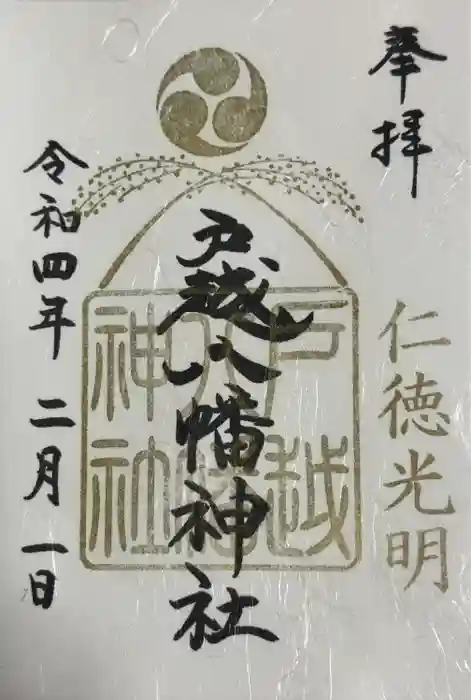 奉拝
仁徳光明
戸越八幡神社
戸越
八幡
神社
令和四年二月一日